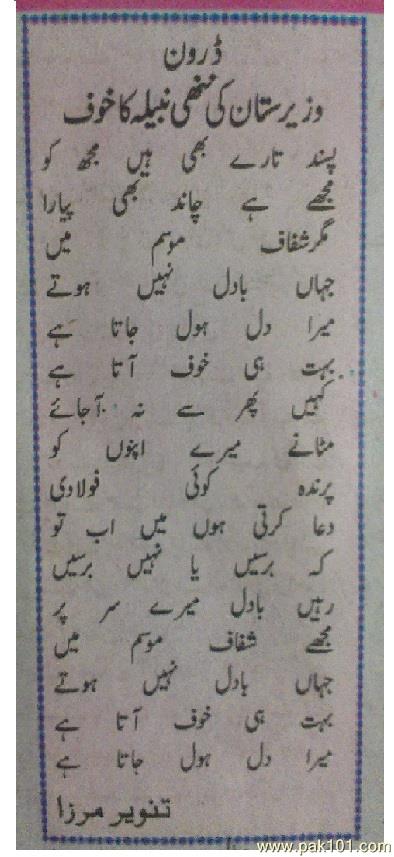 ڈرون
وزیرستان کی ننھی نبیلہ کا خوف
پسند تارے بھی ہیں مجھ کو
مجھے ہے چاند بھی پیارا
مگر شفاف موسم میں
جہاں بادل نہیں ہوتے
میرا دل ہول جاتا ہے
بہت ہی خوف آتا ہے
کہیں پھر سے نہ آجائے
مٹانے میرے اپنوں کو
پرندہ کوئی فولادی
دعا کرتی ہوں میں اب تو
کہ برسیں یا نہیں برسیں
رہیں بادل میرے سر پر
مجھے شفاف موسم میں
جہاں بادل نہیں ہوتے
بہت ہی خوف آتا ہے
میرا دل ہول جاتا ہے
تنویر مرزا
www.pak101.com